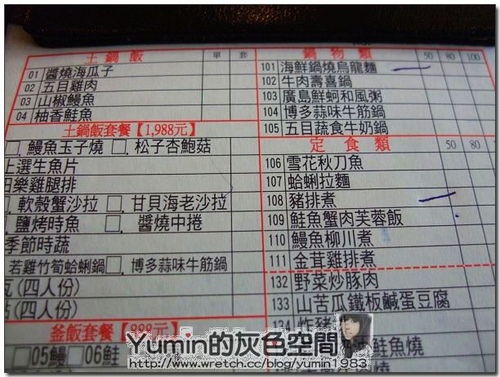 土鍋飯 單 套
01 醬燒海瓜子
02 五目雞肉
03 山椒鰻魚
04 柚香鮭魚
土鍋飯套餐【1,988元】
鰻魚玉子燒 松子杏鮑菇
上選生魚片
田樂雞腿排
軟殼蟹沙拉 甘貝海老沙拉
鹽烤時魚 醬燒中捲
季節時蔬
若雞竹荀蛤蜊鍋 博多蒜味牛筋鍋
(四人份)
(四人份)
釜飯套餐【888元】
05鰻 06鮭
鍋物類 50 80 100
101 海鮮鍋燒烏龍麵
102 牛肉壽喜鍋
103 廣島鮮蚵和風粥
104 博多蒜味牛筋鍋
105 五目蔬食牛奶鍋
定食類 50 80
106 雪花秋刀魚
107 蛤蜊拉麵
108 豬排煮
109 鮭魚蟹肉芙蓉飯
110 鰻魚柳川煮
111 金茸雞排煮
132 野菜炒豚肉
133 山苦瓜鐵板鹹蛋豆腐
134 炸豬
鮭魚燒
Yumin的灰色空間
http://www.wretch.cc/blog/yumin1983